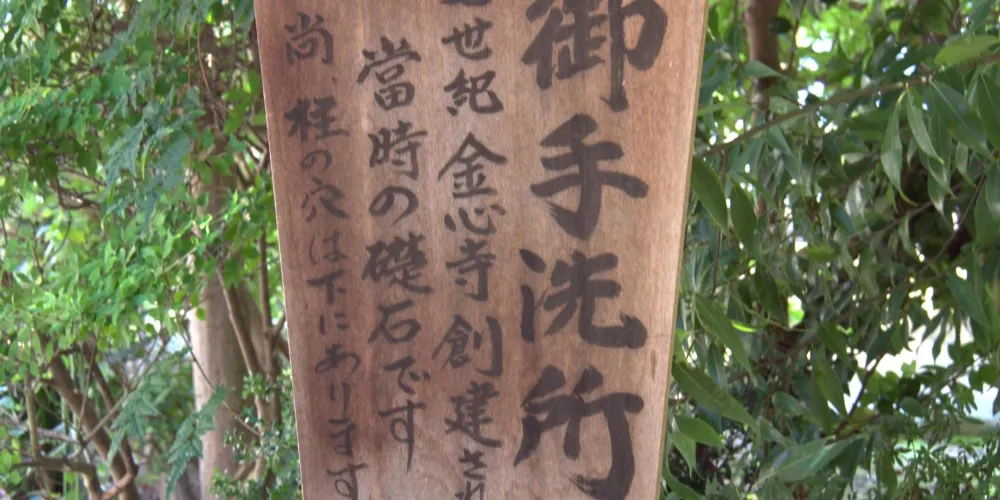 御手洗所
世紀金心寺創建され
當時の礎石です
尚、柱の穴は下にあります